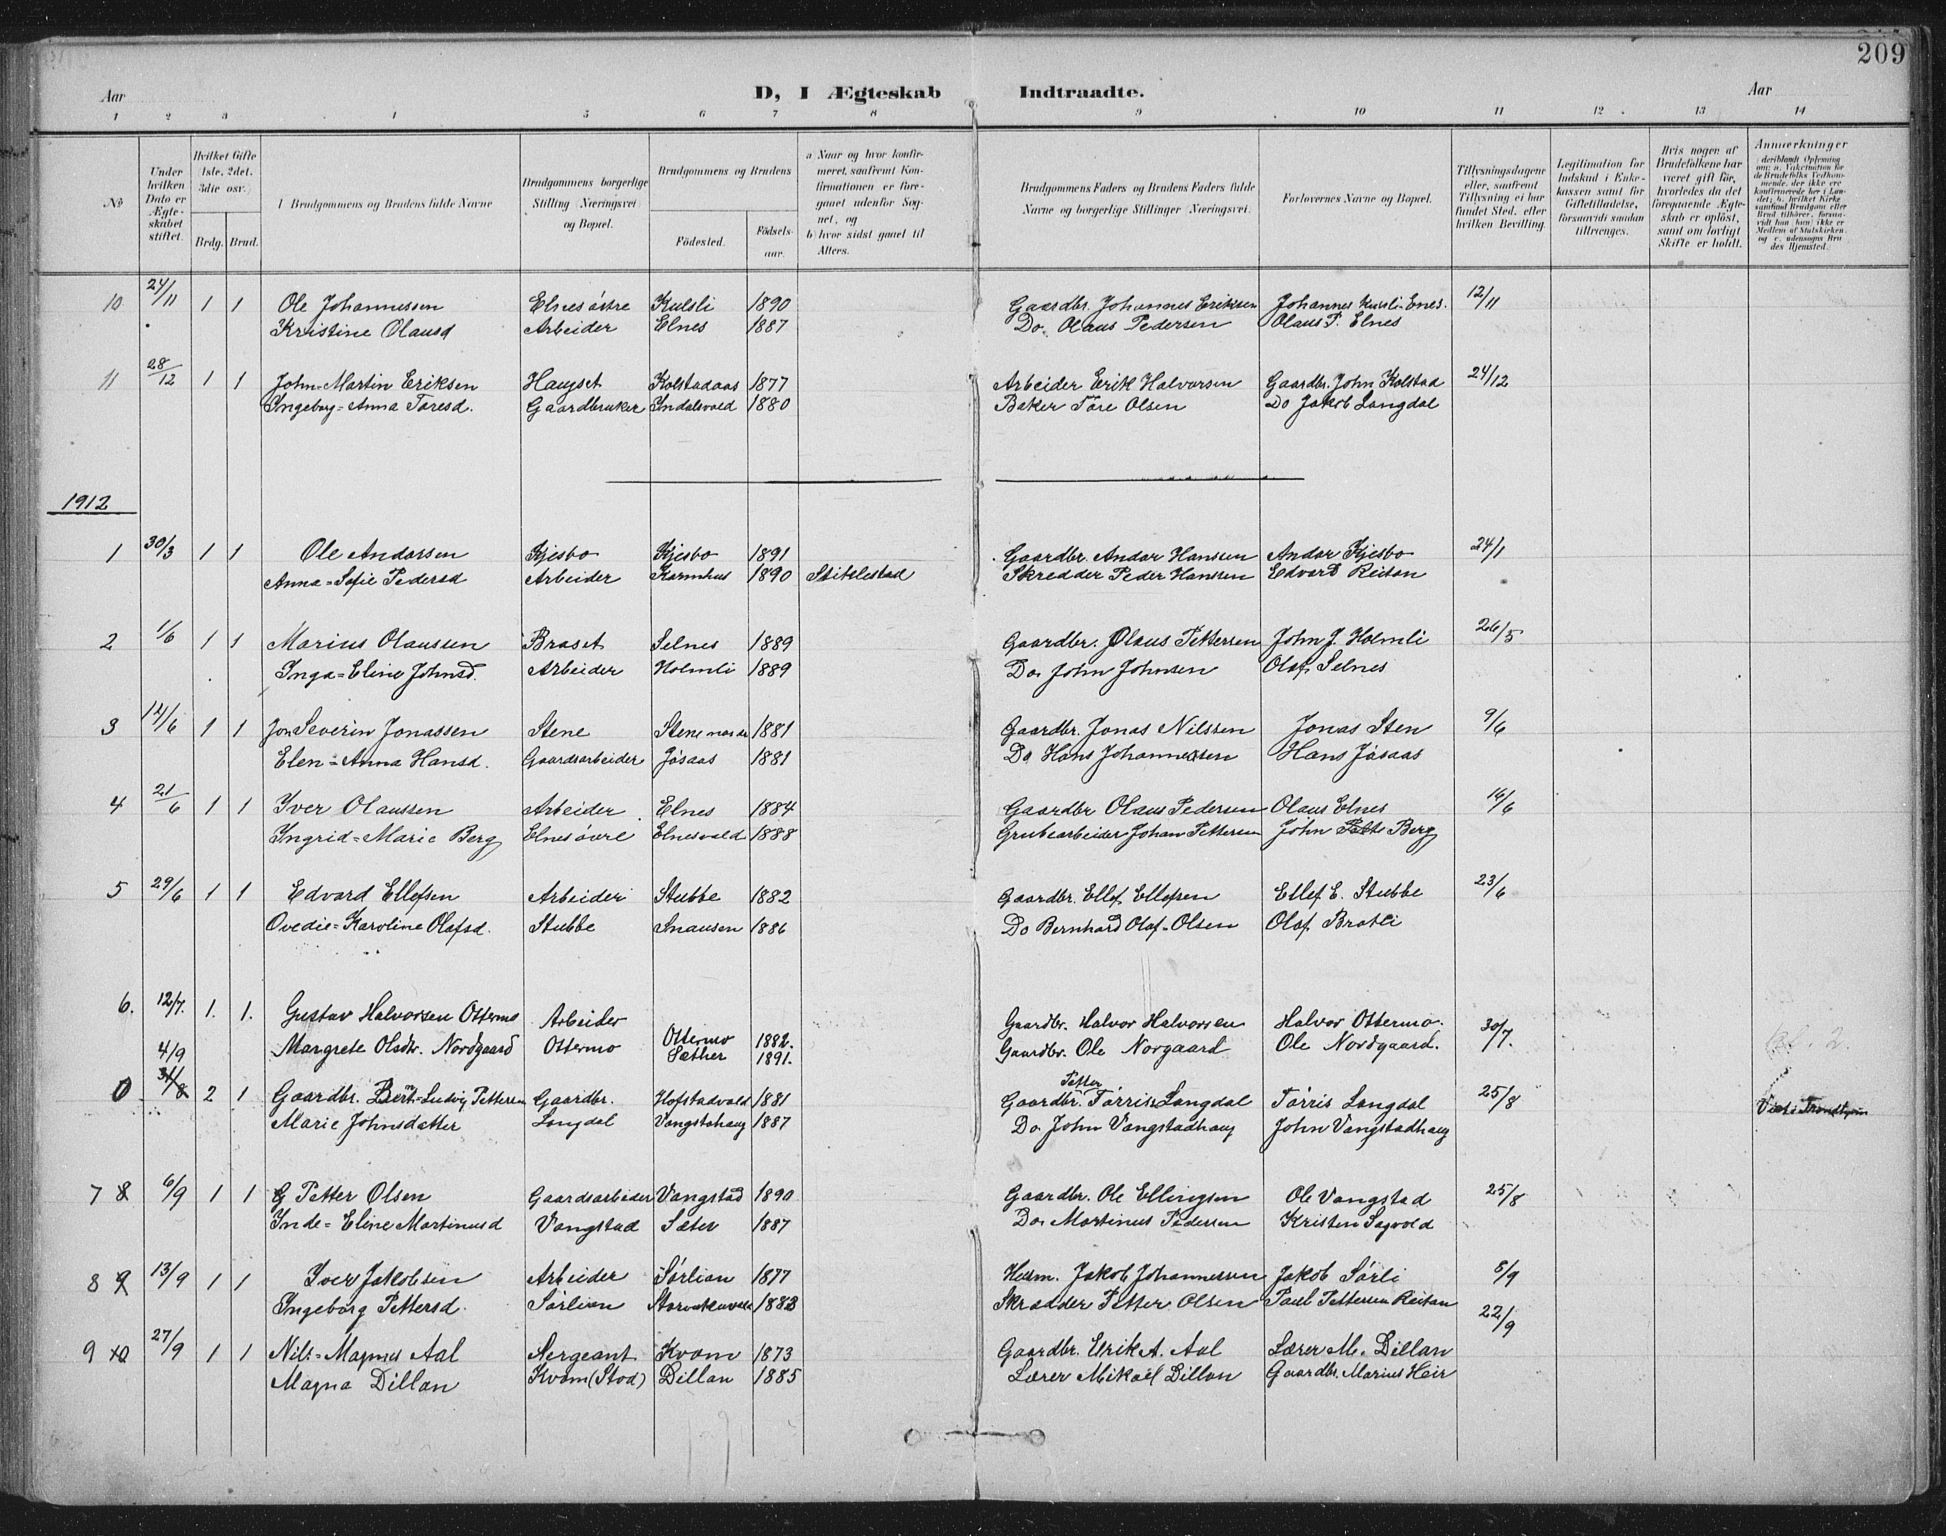 209
Aar
D, I Ægteskab Indtraadte.
Aar
1 2 3 4 5 6 7 8 9 10 11 12 13 14
No
Under hvilken Dato er Ægteskabet stiftet.
Hvilket Gifte (1ste, 2det, 3die osv.)
Brdg. Brud.
Brudgommens og Brudens fulde Navne
Brudgommens borgerlige Stilling (Næringsvei) og Bopæl.
Brudgommens og Brudens
Fødested. Fødselsaar.
a) Naar og hvor konfirmeret, saafremt Konfirmationen er foregaaet udenfor Sognet, og
b) hvor sidst gaaet til Alters.
Brudgommens Faders og Brudens Faders fulde Navne og borgerlige Stillinger (Næringsvei).
Forlovernes Navne og Bopæl.
Tillysningsdagene eller, saafremt Tillysning ei har fundet Sted, efter hvilken Bevilling.
Legitimation for Indskud i Enkekassen samt for Giftetilladelse, forsaavidt saadan tiltrænges.
Hvis nogen af Brudefolkene har været gift før, hvorledes da det foregaaende Ægteskab er opløst, samt om lovligt Skifte er holdt.
Anmerkninger
10 24/11 1 1 Ole Johannessen Elnes østre Kulsli 1890 Gaardbr. Johannes Eriksen Johannes Kulsli Enes. 12/11
Kristine Olausd Arbeider Elnes 1887 Do. Olaus Pedersen Olaus P. Elnes
11 28/12 1 1 John-Martin Eriksen Haugset Kolstadaas 1877 Arbeider Erik Halvorsen Gaardbr. John Kolstad 24/12
Ingeborg-Anna Toresd. Gaardbruker Indalsvald 1880 Baker Tore Olsen Do Jakob Langdal
1912
1 30/3 1 1 Ole Andorsen Kjesbo Kjesbo 1891 Gaardbr. Andor Hanssen Andor Kjesbo 24/1
Anna-Sofie Pedersd Arbeider Kormhus 1890 Stiklestad Skredder Peder Hanssen Edvard Reitan
2 1/6 1 1 Marius Olaussen Braset Selnes 1889 Gaardbr. Olaus Pettersen John J. Holmli 26/5
Inga-Eline Johnsd. Arbeider Holmli 1889 Do. John Johnsen Olaf Selnes
3 14/6 1 1 Jon Severin Jonassen Stene Stene nordre 1881 Gaardbr. Jonas Nilssen Jonas Sten 9/6
Elen-Anna Hansd. Gaardsarbeider Jøsaas 1881 Do Hans Johannessen Hans Jøsaas
4 21/6 1 1 Iver Olaussen Arbeider Elnes 1884 Gaardbr Olaus Pedersen Olaus Elnes 16/6
Ingrid-Marie Berg Elnes øvre Elnesvald 1888 Grubearbeider Johan Pettersen John Berg
5 29/6 1 1 Edvard Ellefsen Arbeider Stubbe 1882 Gaardbr. Ellef Ellefsen Ellef E. Stubbe 23/6
Ovedie-Karoline Olafsd. Stubbe Snausen 1886 Do Bernhard Olaf-Olsen Olaf Bratli
6. 12/7. 1. 1. Gustav Halvorsen Ottermo Arbeider Ottermo 1882. Gaardbr. Halvor Halvorsen Halvor Ottermo. 30/7.
4/9 Margrete Olsdtr. Nordgaard Ottermo Sæther 1891. Gaardbr. Ole Norgaard Ole Nordgaard.
0 31/8 2 1 Gaardbr. Bert-Ludvig Pettersen Gaardbr. Hofstadvald 1881 Gaardbr. Petter Tørris Langdal Tørris Langdal 25/8
Marie Johnsdatter Langdal Vangstahaug 1887 Do John Vangstadhaug John Vangstadhaug
7 8 6/9 1 1 Petter Olsen Gaardsarbeider Vangstad 1890 Gaardbr. Ole Ellingsen Ole Vangstad 25/8
Inde-Eline Martinusd Vangstad Sæter 1887 Do. Martinus Pedersen Kristen Sagvold
8 9 13/9 1 1 Iver Jakobsen Arbeider Sørlian 1877 Husm. Jakob Johannessen Jakob Sørli 8/9
Ingeborg Pettersd. Sørlian 1883 Skrædder Petter Olsen Paul Pettersen Reitan
22/9
9 10 27/9 1 1 Nils-Magnus Aal Sergeant Kvam 1873 Gaardbr. Erik A. Aal Lærer M. Dillan
Magna Dillan Kvam (Stod) Dillan 1885 Lærer Mikael Dillan Gaardbr. Marius Heir